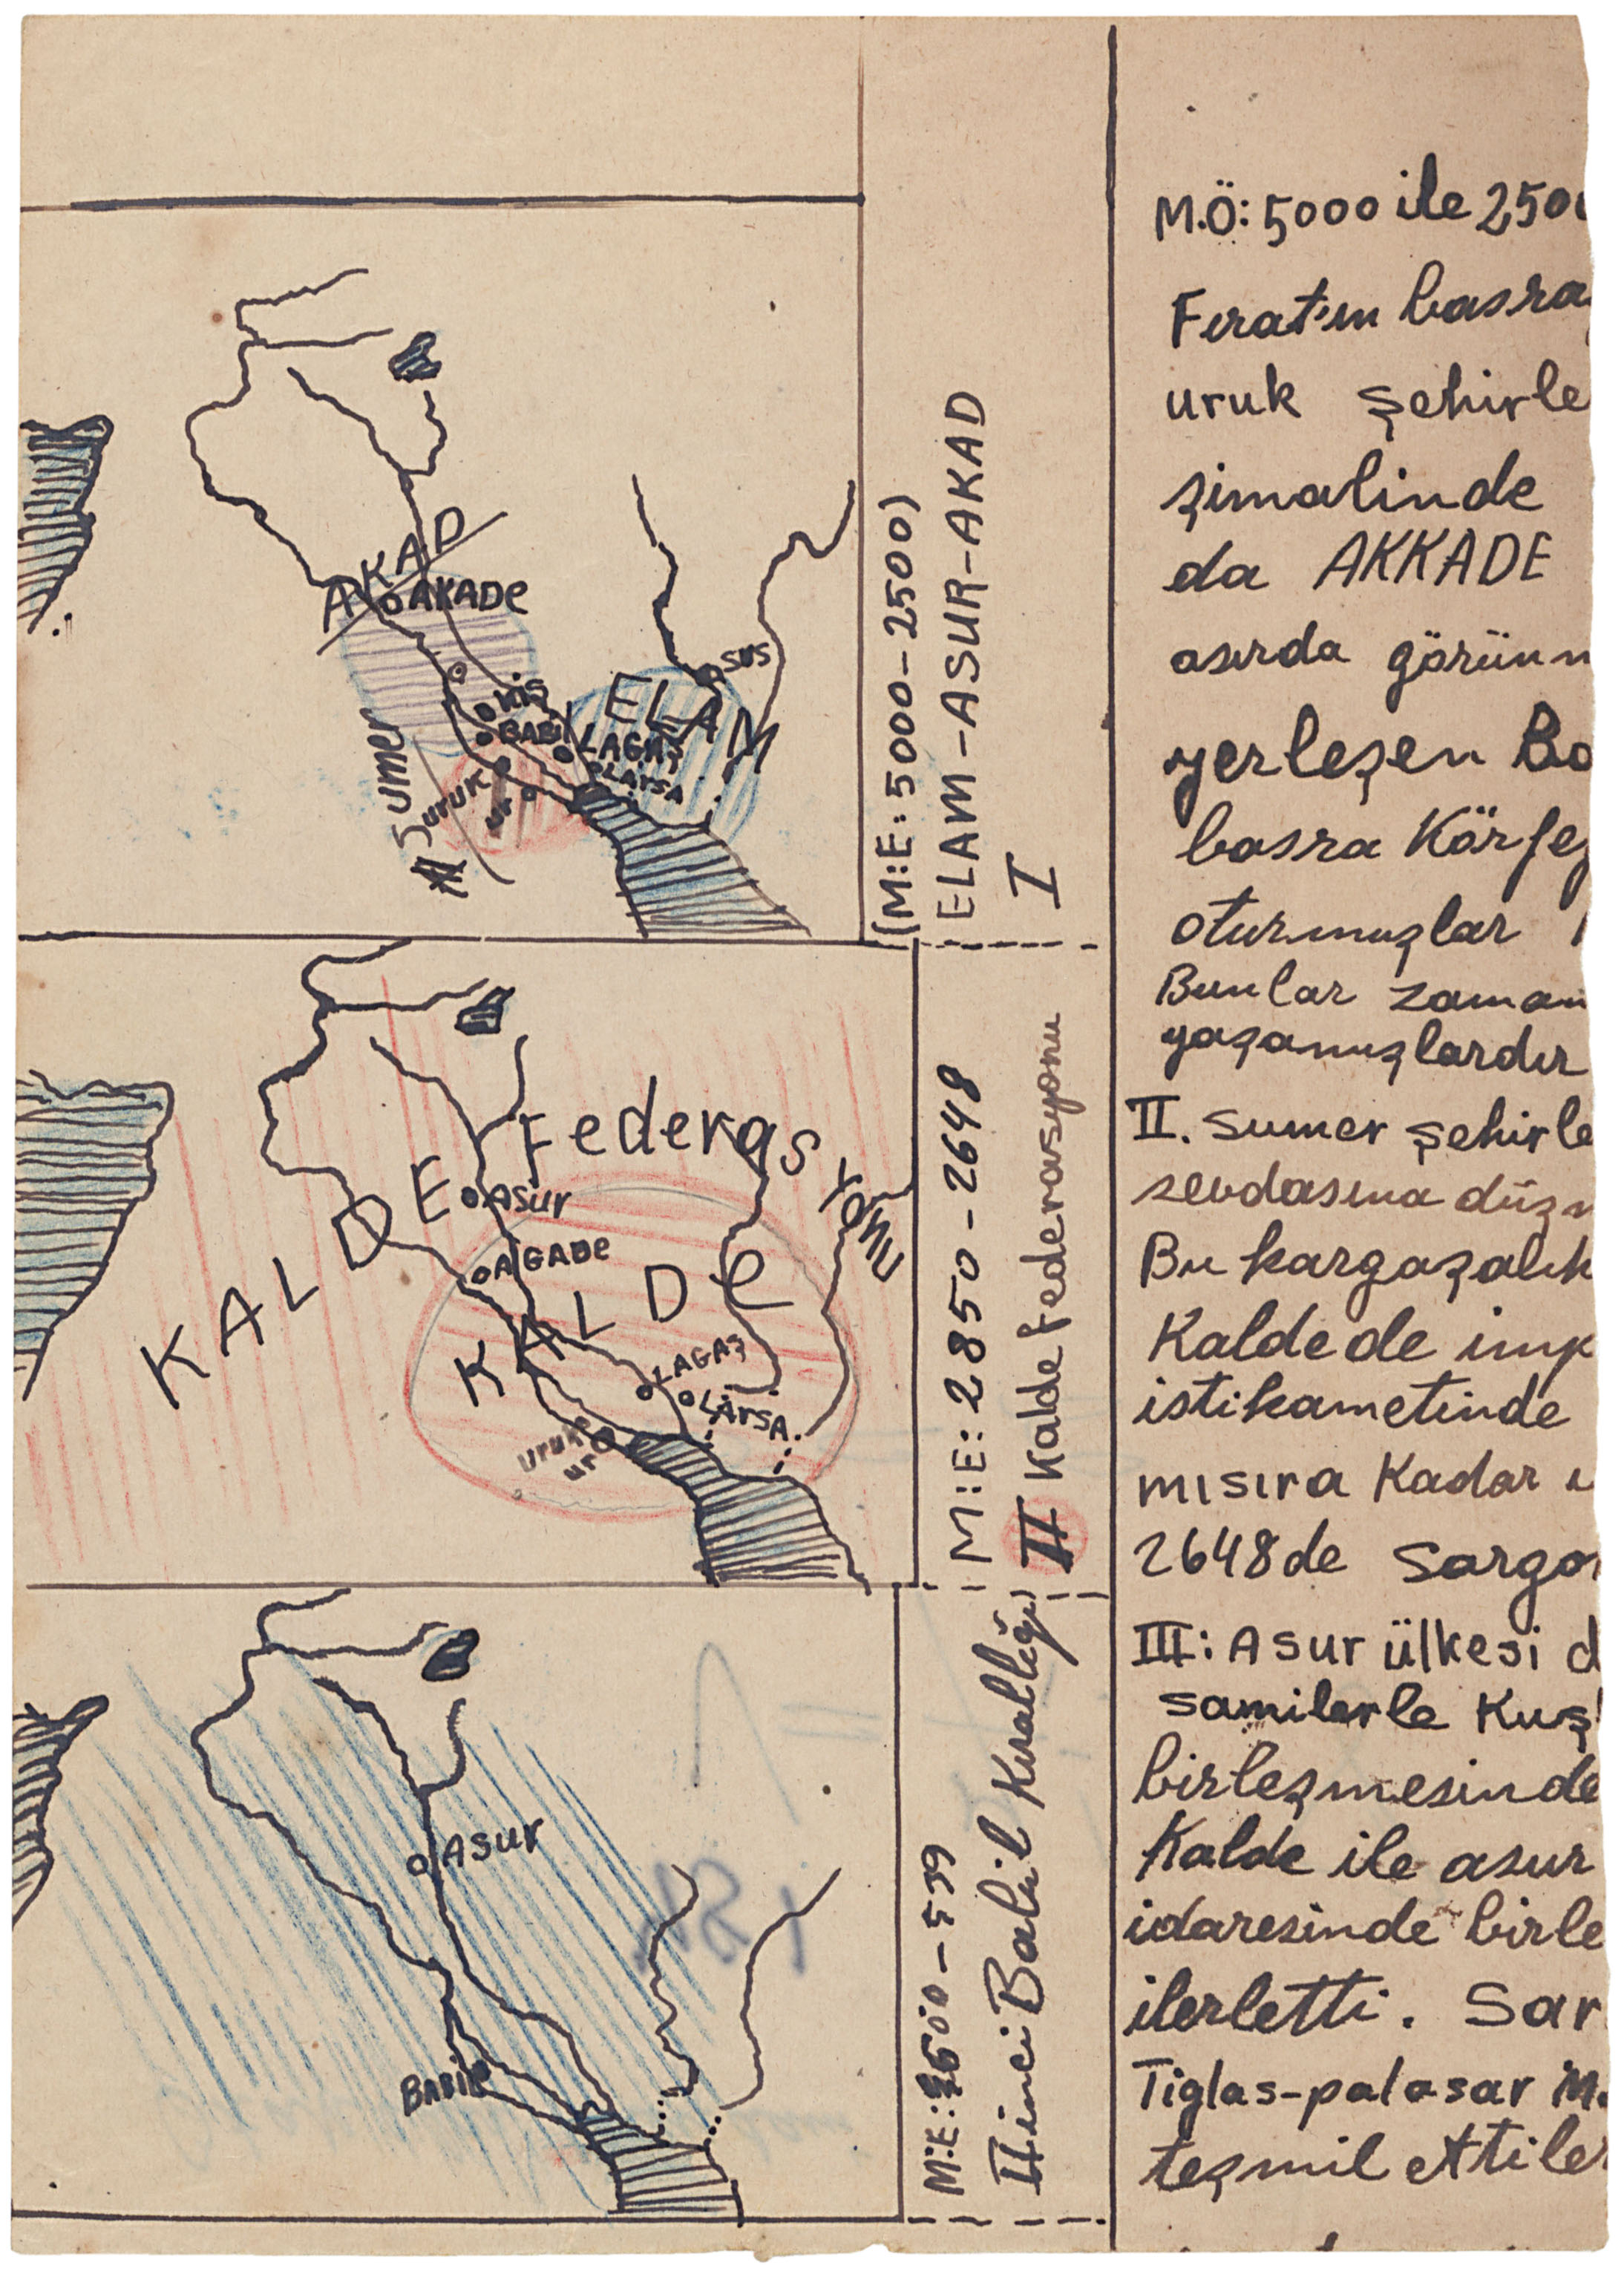 AKAD
AKADE
SUS
KiŞ
BABİL
ELAM
LAGAŞ
LARSA
Sumer
uruk
ur
(M:E:5000-2500)
ELAM-ASUR-AKAD
I
Federasyonu
KALDE
ASUR
AGADE
KALDE
LAGAŞ
LARSA
uruk
ur
M:E:2850-2648
II Kalde federasyonu
ASUR
BABİL
Babil Kırallığı
M.Ö:5000 ile 250
Fırat'ın basra
uruk şehirle
şimalinde
da AKKADE
asırda görünm
yerleşen Ba
basra Körfez
oturmuşlar
Bunlar zaman
yaşamışlardır
II. Sumer şehirle
sevdasına düşm
Bu kargaşalık
Kaldede imp
istikametinde
mısıra Kadar
2648de Sargo
III: Asur ülkesi d
samilerle Kuş
birleşmesinde
Kalde ile asur
idaresinde birle
ilerletti. Sar
Tiglas-palasar M.
teşmil ettiler